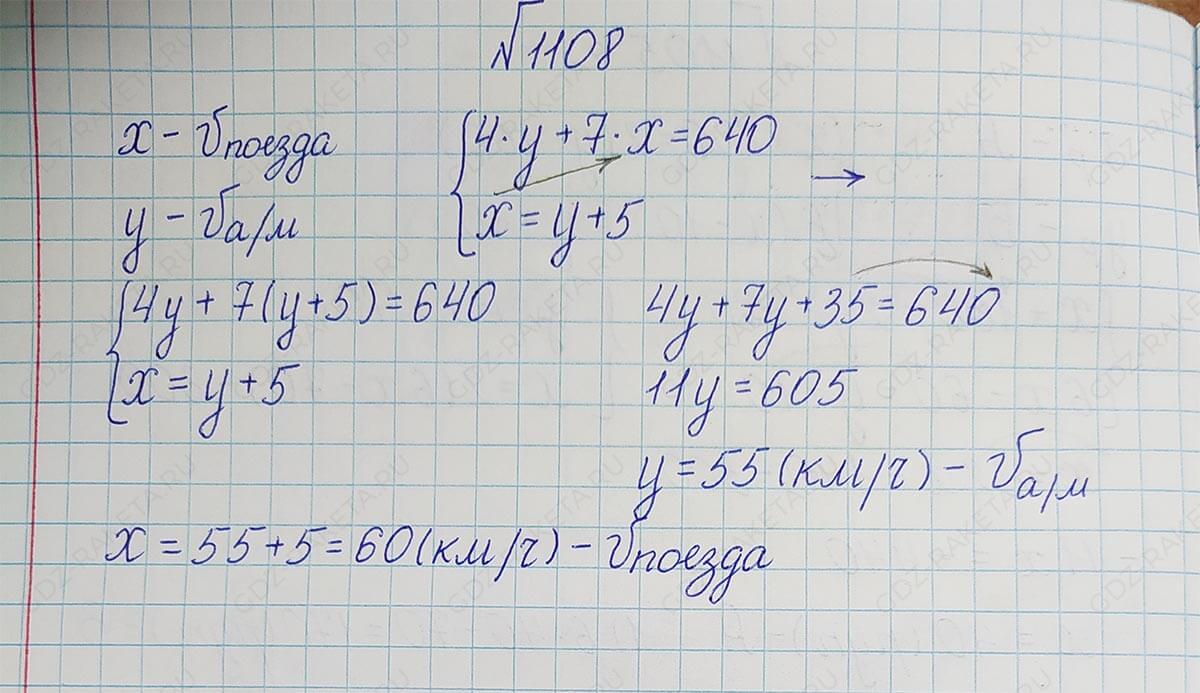 №1108
x - Vпоезда
y - Va/м
{4·y + 7·x = 640
{x = y + 5
→
{4y + 7(y+5) = 640
{x = y + 5
4y + 7y + 35 = 640
11y = 605
y = 55 (км/ч) - Va/м
x = 55 + 5 = 60 (км/ч) - Vпоезда
GDZ-RAKETA.RU